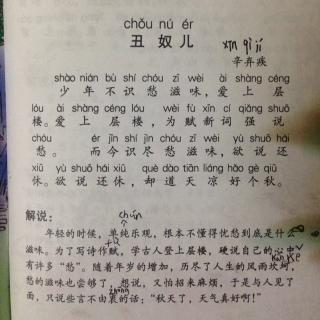 chǒu nú ér
丑奴儿
xīn qì jí
辛弃疾
shào nián bù shí chóu zī wèi ài shàng céng
少年不识愁滋味,爱上层
lóu ài shàng céng lóu wèi fù xīn cí qiǎng shuō
楼。爱上层楼,为赋新词强说
chóu ér jīn shí jìn chóu zī wèi yù shuō hái
愁。而今识尽愁滋味,欲说还
xiū yù shuō hái xiū què dào tiān liáng hǎo gè qiū
休。欲说还休,却道天凉好个秋。
解说:
chún
年轻的时候,单纯乐观,根本不懂得忧愁到底是什么
滋味。为了写诗作赋,学古人登上层楼,硬说自己的心中
kǎn kě
有许多“愁”。随着年岁的增加,历尽了人生的风雨坎坷,
愁的滋味也尝够了,想说,又怕招来麻烦,于是与人见了
zhōng
面,只说些言不由衷的话:“秋天了,天气真好啊!”